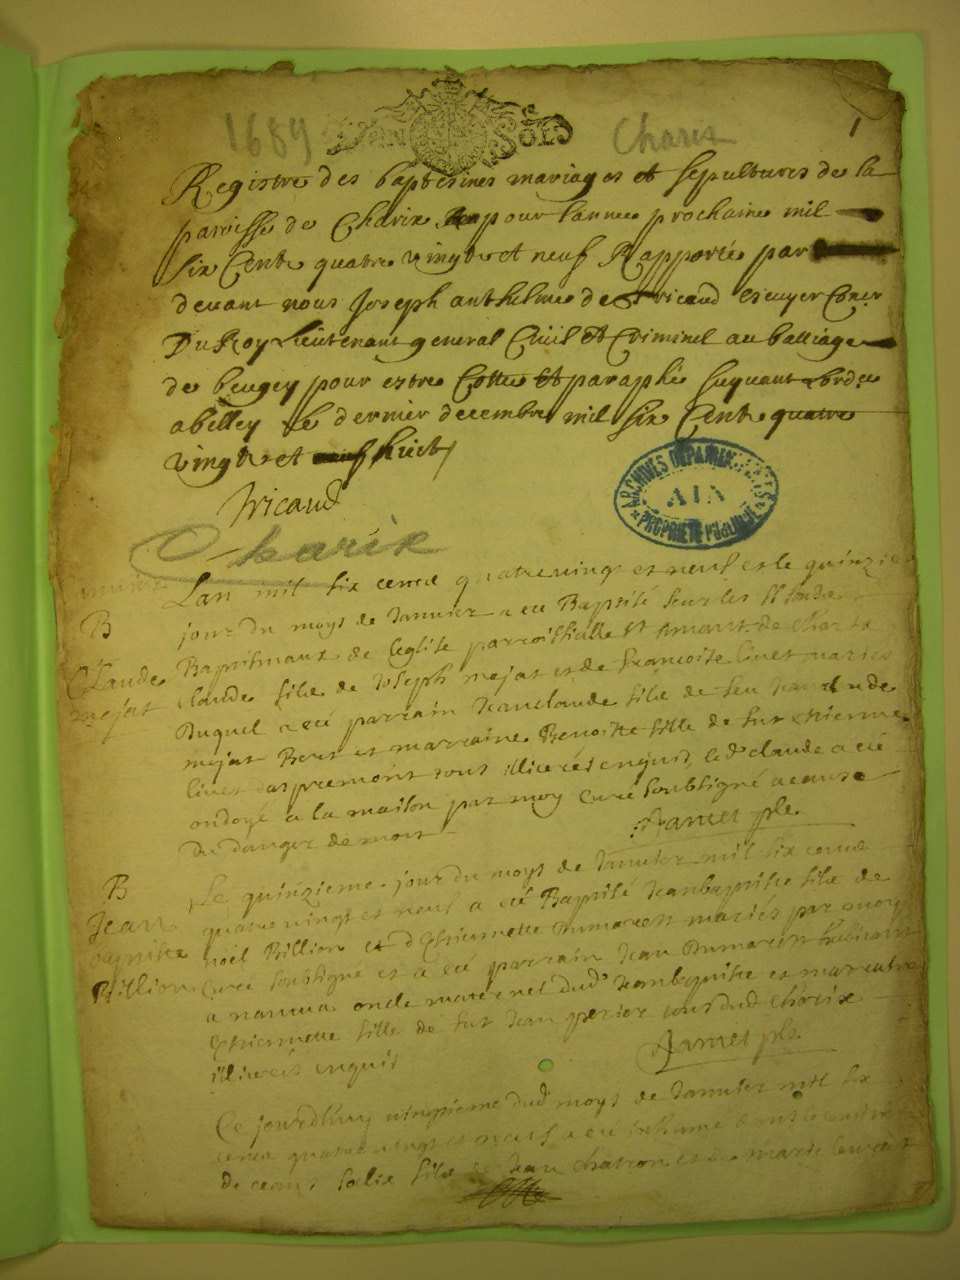 1689 Deux Sols Charix 1
Registre des baptesmes mariages et sepultures de la
paroisse de Charix pour lannee prochaine mil
six Cents quatre vingts et neuf Rapportée par
devant nous Joseph anthelme de tricaud escuyer Coner
Du Roy Lieutenant general Civil et Criminel au balliage
de beugey pour estre Cotté et paraphé suyvant lordce
a belley le dernier decembre mil six Cents quatre
vingts et huict
Tricaud
ARCHIVES DEPARTEMENTALES
AIN
PROPRIETE PUBLIQUE
Charix
Lan mil six cents quatrevingt et neuf et le quinzie
B
jour du moys de Janvier a eté Baptisé sur les
Claude
Baptismaux de leglise parroissialle St amant de
mejat
claude fils de Joseph mejat et de francoise livet mariés
Duquel a eté parrain Jeanclaude fils de feu Jeanclaude
mejat et marraine Benoitte fille de feu Estienne
livet tous illiterés enquis, le dt claude a eté
ondoyé a la maison par moy Curé soubsigné a cause
du danger de mort
B
Le quinzieme jour du moys de Janvier mil six cents
Jean
quatrevingt et neuf a eté Baptisé Jeanbaptiste fils de
baptiste
noël Billion et d'Estiennette Dumarest mariés par moy
Billion
Curé soubsigné et a eté parrain Jean Dumarest
a nantua oncle maternel dud Jeanbaptiste et marraine
Estiennette fille de feu Jean perier tous dud Charix
illiterés enquis
Ce jourdhuy dud moys de Janvier mil six
cents quatrevingt et neuf a eté inhumé
fils de Jean et de